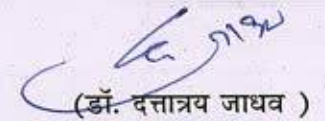 (डॉ. दत्तात्रय जाधव )